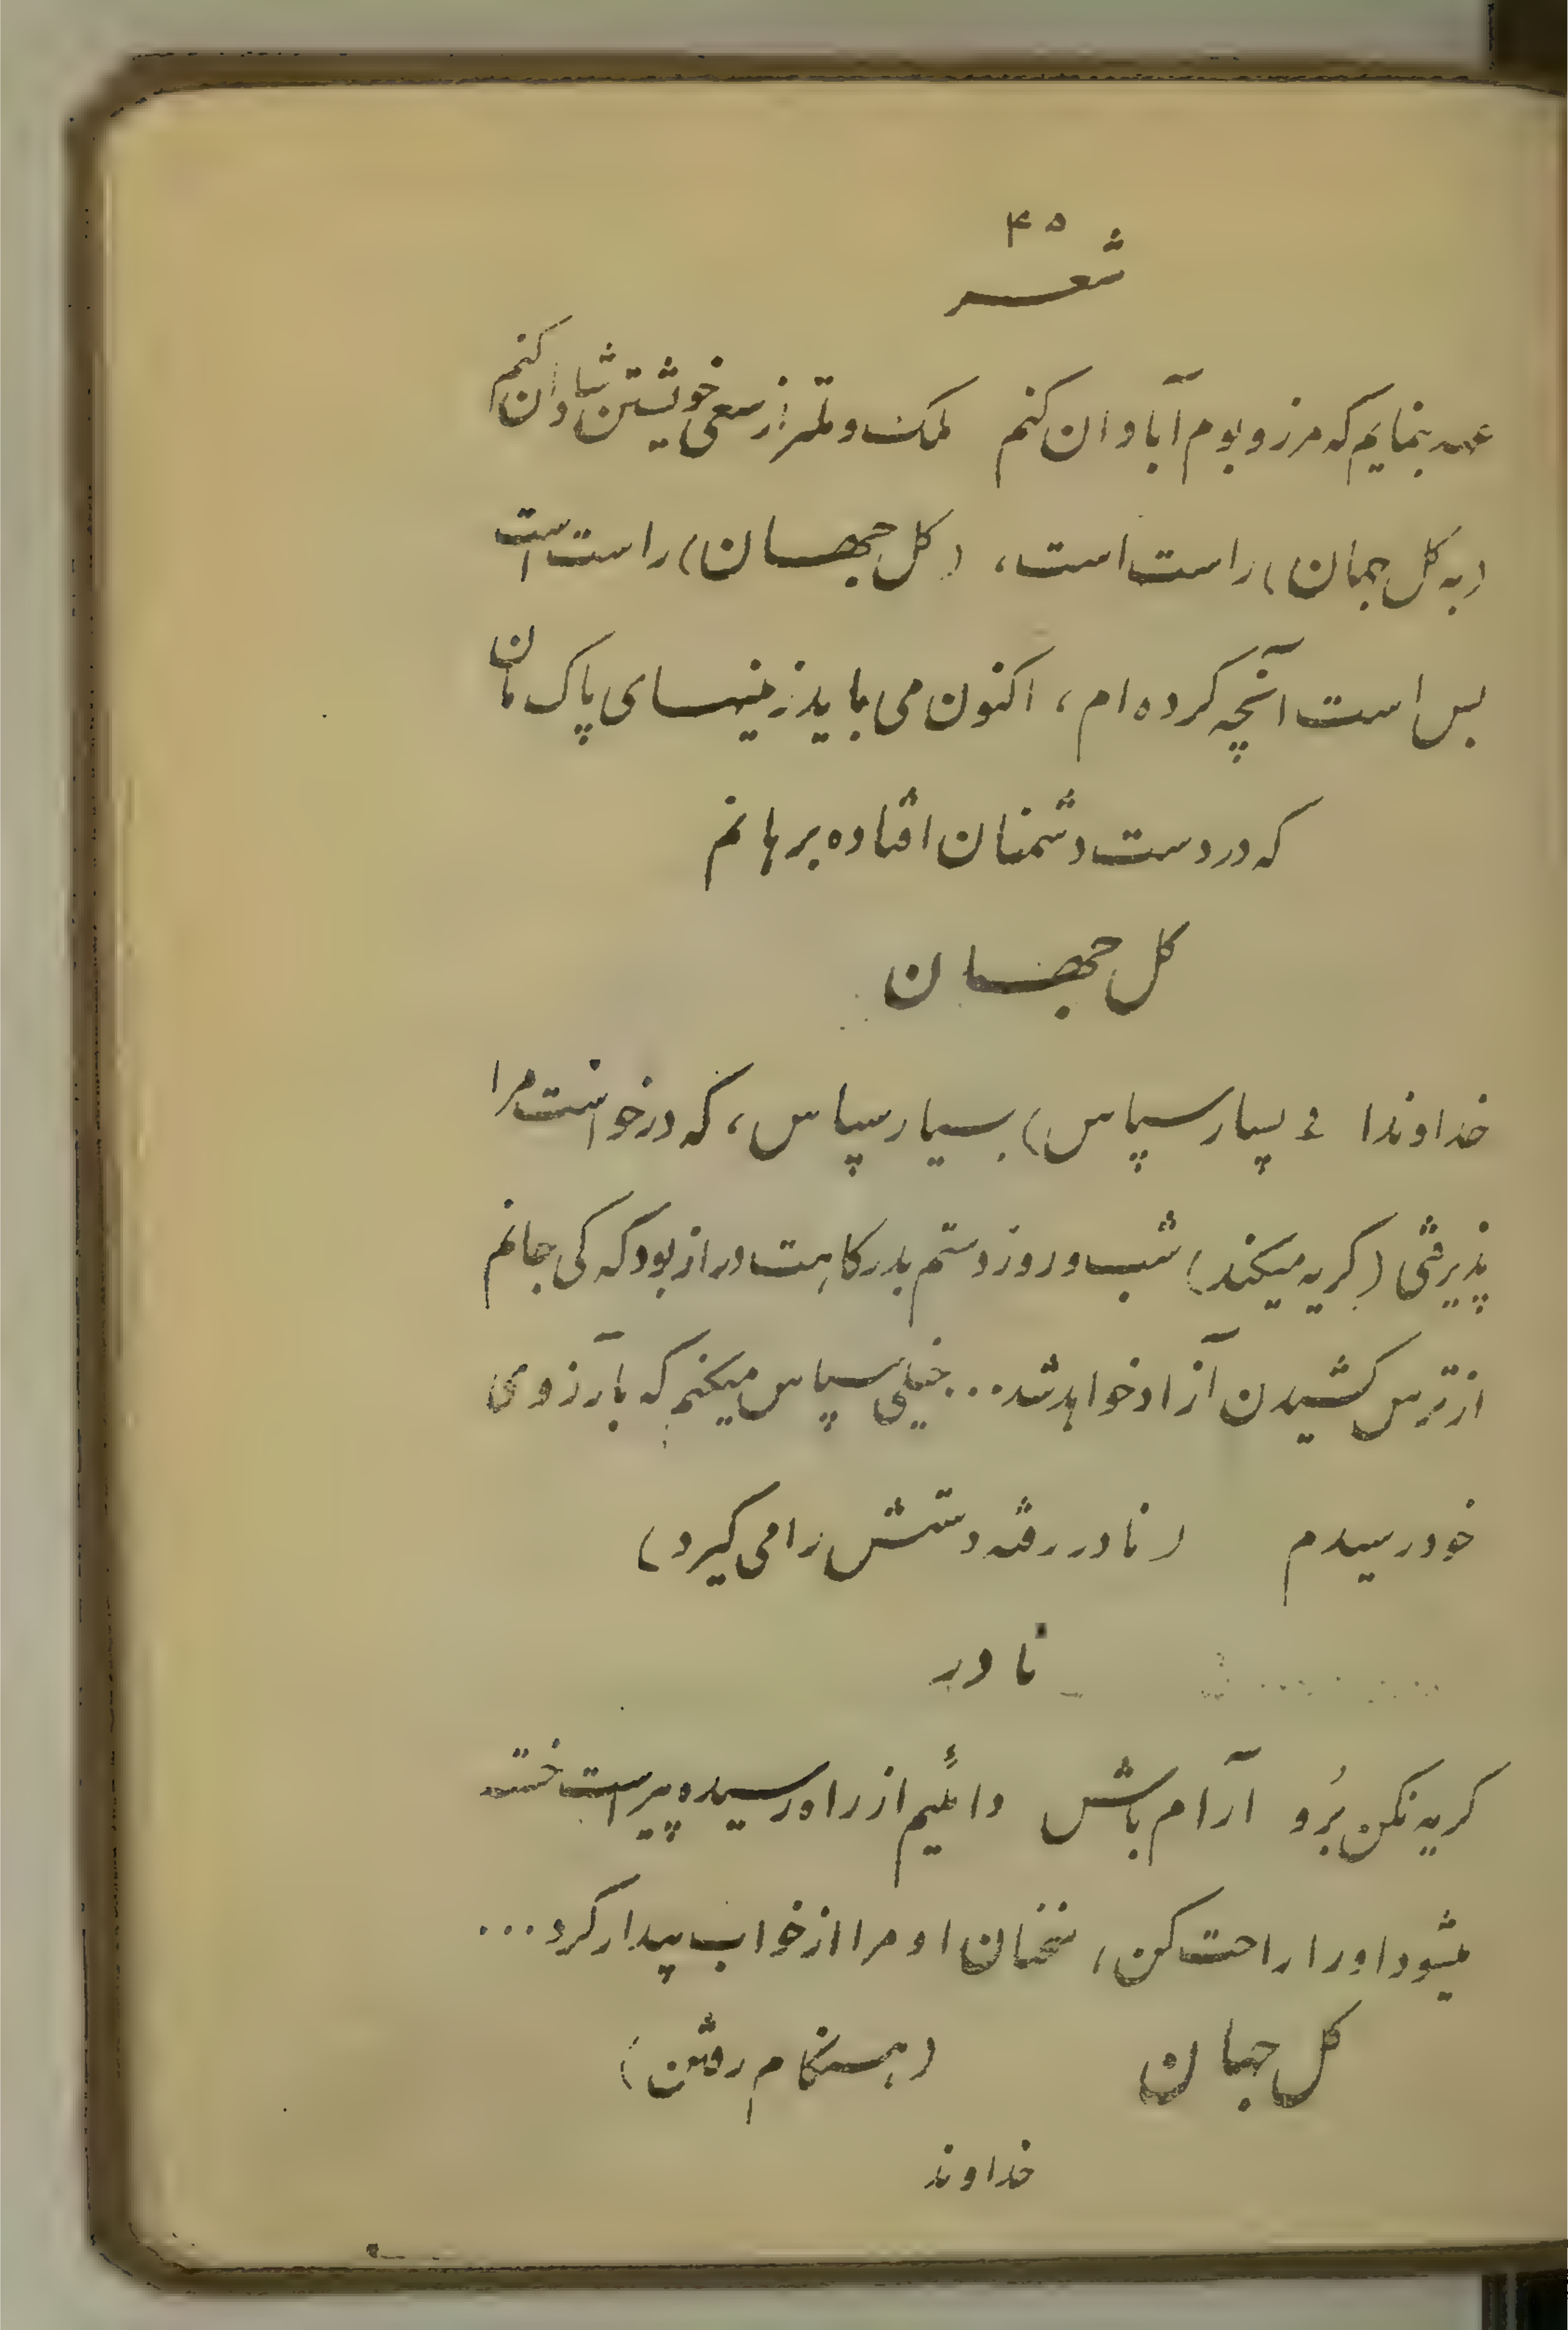 ۴۵
شعر
عهد بنمایم که مرز و بوم آبادان کنم ملک و ملتر از سعی خویشتن شادان کنم
(به گل جهان) راست است، (گل جهان) راست است
بس است آنچه کرده‌ام، اکنون می باید زمینهای پاک مان
که در دست دشمنان افتاده برهانم
گل جهان
خداوندا بسیار سپاس) بسیار سپاس، که درخواست مرا
پذیرفتی (گریه میکند) شب و روز دستم بدرگاهت دراز بود که کی جانم
از ترس کشیدن آزاد خواهد شد... خیلی سپاس میکنم که بآرزوی
خود رسیدم (نادر رفته دستش را می گیرد)
نادر
گریه نکن بُرو آرام باش دائیم از راه رسیده پیر است خسته
میشود او را راحت کن، سخنان او مرا از خواب بیدار کرد...
گل جهان (هنگام رفتن)
خداوند